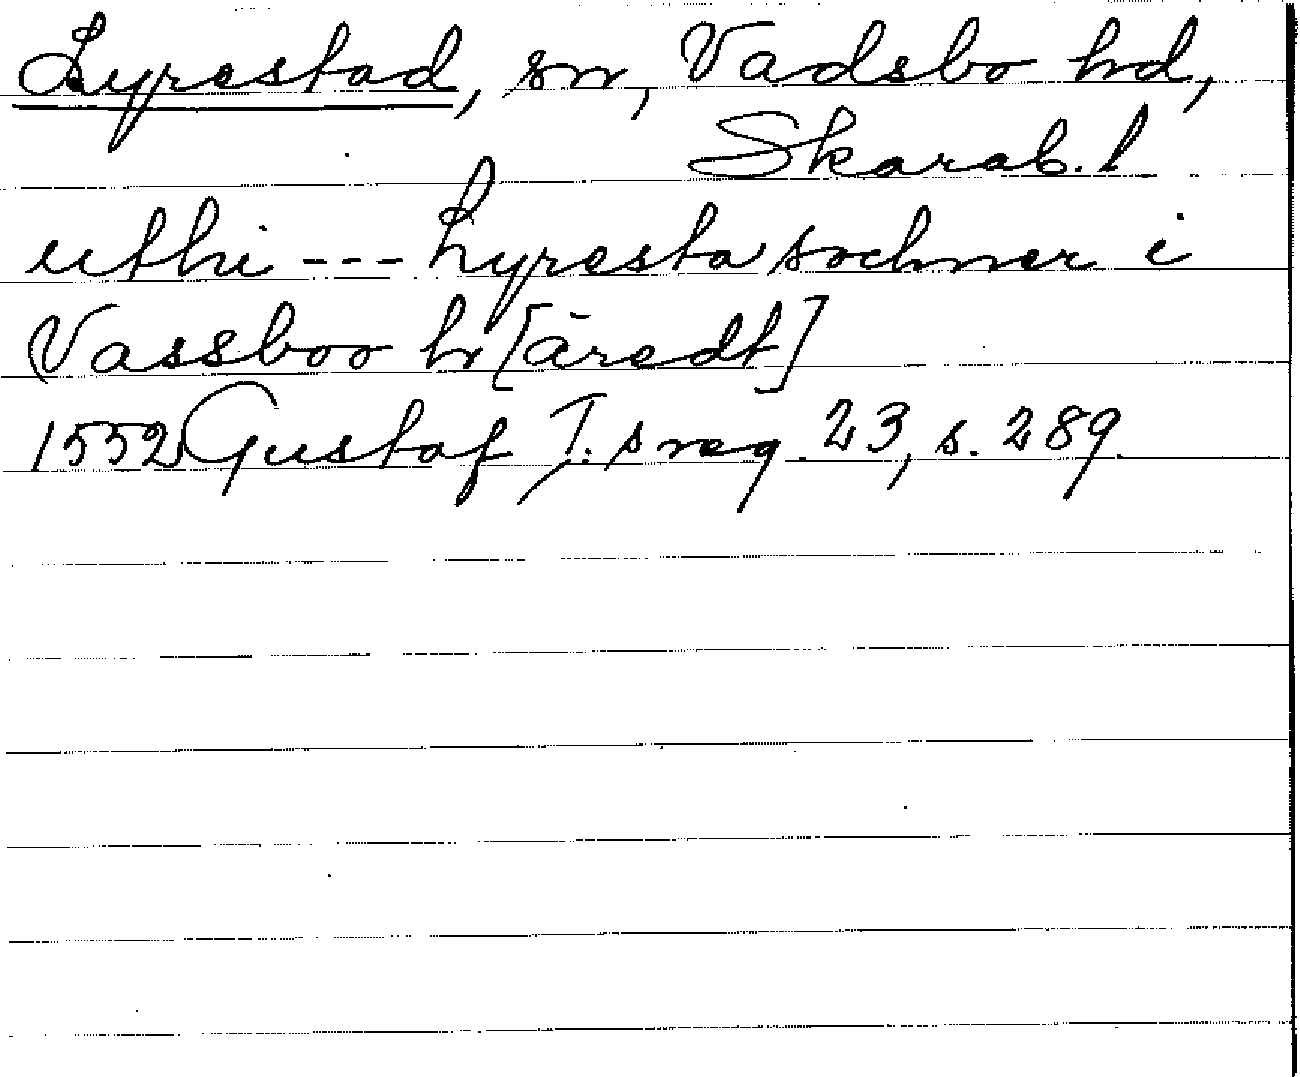 Lyrestad, sn, Vadsbo hd,
Skarab. l
uthi --- Lyresta sochner i
Vassboo h [äredt]
1552 Gustaf I:s reg. 23, s. 289.